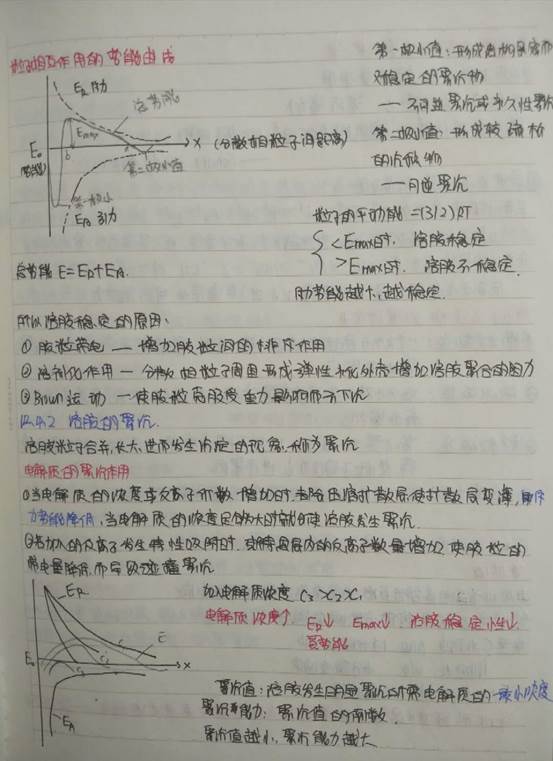 粒子间相互作用的势能曲线
ER 斥力
总势能
Emax
E0
x (分散相粒子间距离)
(势能)
第二极小值
第一极小
EA 引力
总势能 E=ER+EA.
第一极小值：形成结构紧密而
又稳定的聚沉物
— 不可逆聚沉或永久性聚沉
第二极小值：形成较疏松
的沉积物
— 可逆聚沉
粒子的平动能 =(3/2)RT
<Emax时. 溶胶稳定
>Emax时. 溶胶不稳定.
斥势能越大,越稳定.
所以溶胶稳定的原因：
① 胶粒带电 — 增加胶粒间的排斥作用
② 溶剂化作用 — 分散相粒子周围形成弹性水化外壳增加溶胶聚合的阻力
③ Brown 运动 — 使胶粒克服受重力影响而不下沉
12.9.2 溶胶的聚沉
溶胶粒子合并,长大,进而发生沉淀的现象,称为聚沉
电解质的聚沉作用
①当电解质的浓度或反离子价数增加时,都会压缩扩散层,使扩散层变薄,斥
力势能降低,当电解质的浓度足够大时就会使溶胶发生聚沉
②若加入的反离子发生特性吸附时,
层内的反离子数量增加,使胶粒的
带电量降低,而导致碰撞聚沉
ER
E
E0
x
EA
加电解质浓度 C3>C2>C1
电解质浓度↑ ER↓ Emax↓ 溶胶稳定性↓
总势能
聚沉值：溶胶发生明显聚沉所需电解质的最小浓度
聚沉能力：聚沉值的倒数.
聚沉值越小,聚沉能力越大